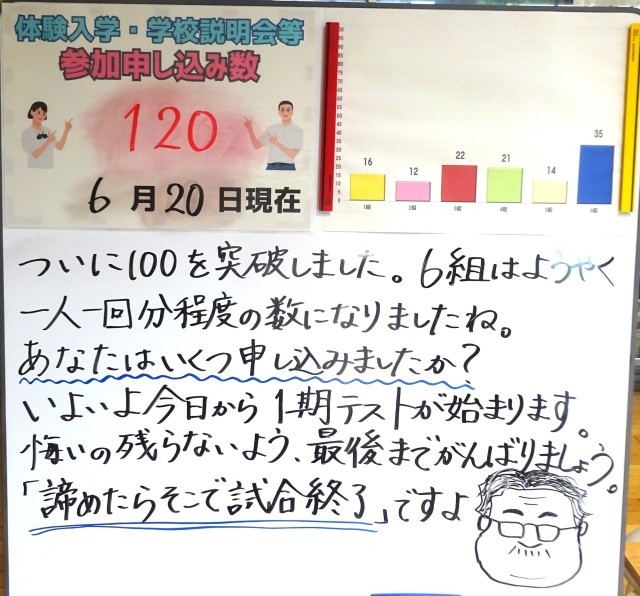 体験入学・学校説明会等
参加申し込み数
120
6月20日現在
16 12 22 21 14 35
1組 2組 3組 4組 5組 6組
ついに100を突破しました。6組はようやく
一人一回分程度の数になりましたね。
あなたはいくつ申し込みましたか?
いよいよ今日から1期テストが始まります。
悔いの残らないよう、最後までがんばりましょう。
「諦めたらそこで試合終了」ですよ